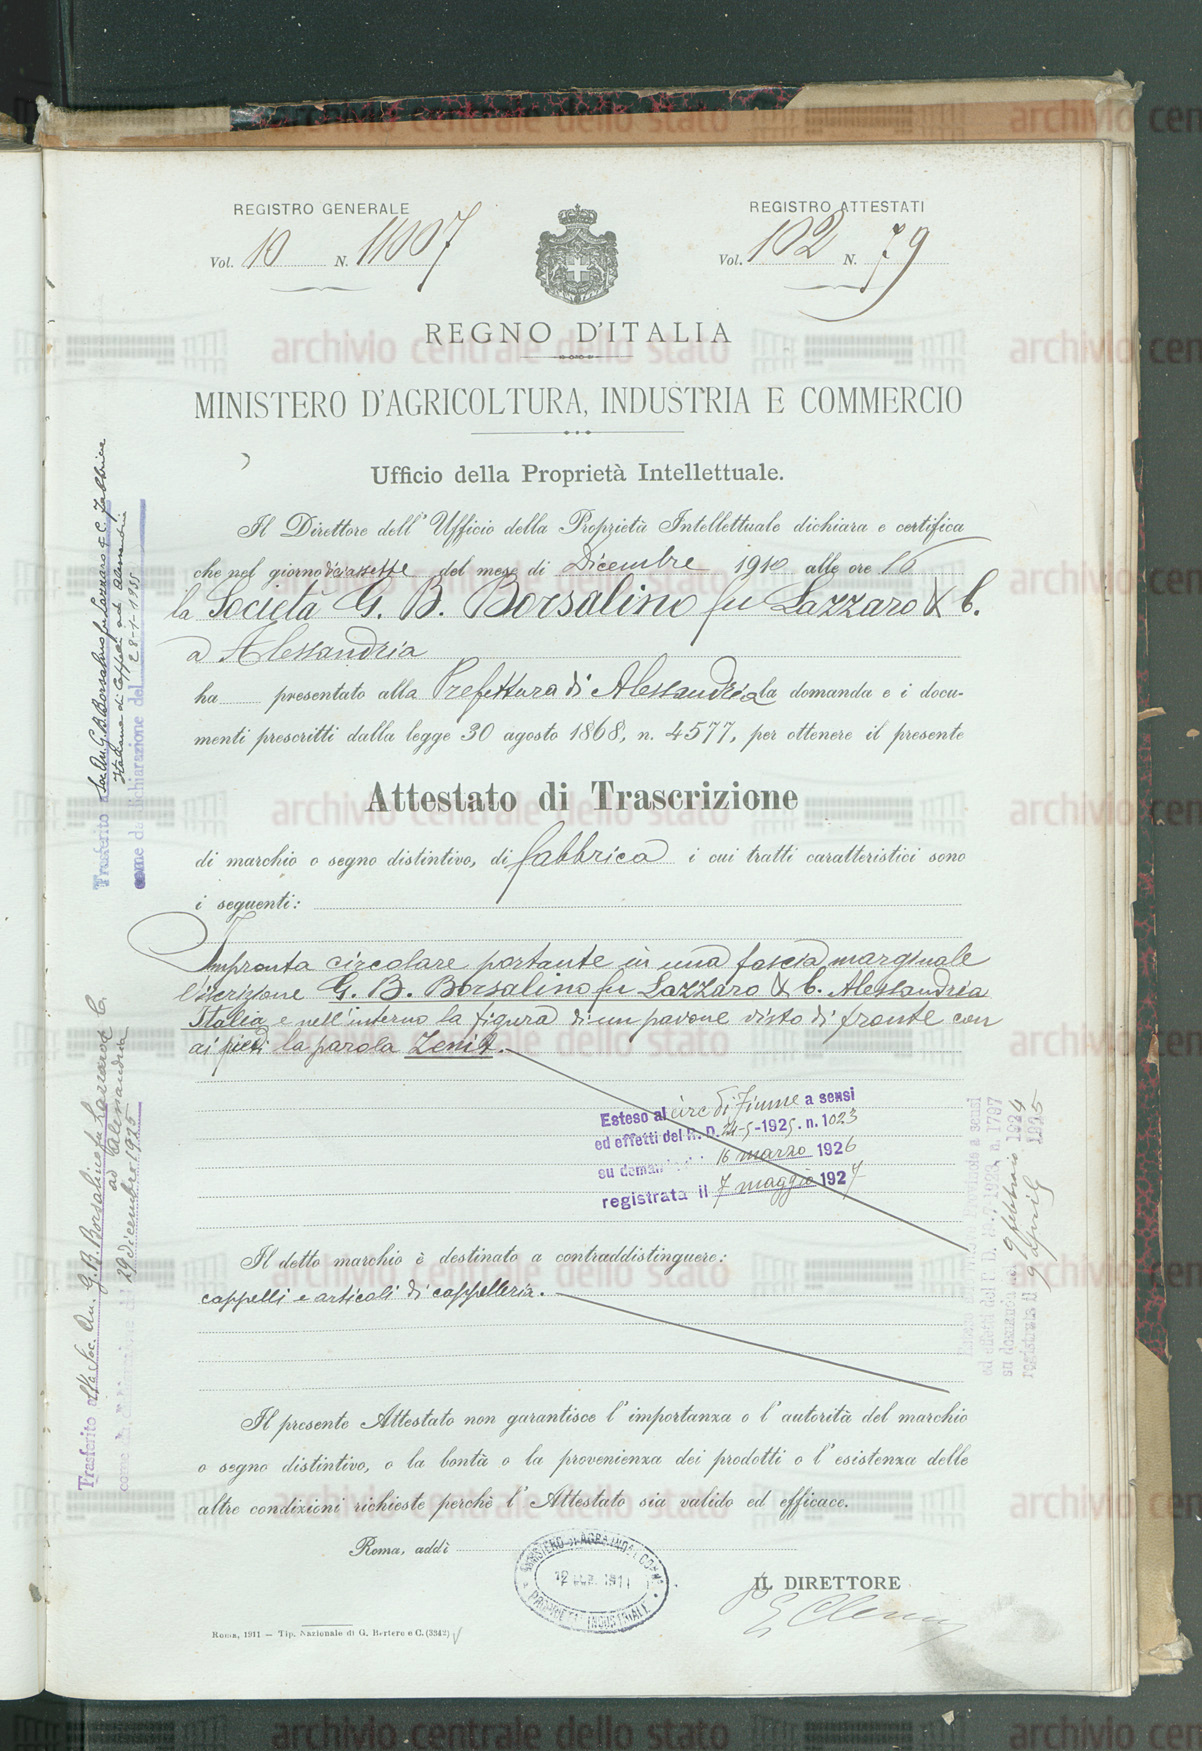 REGISTRO GENERALE
Vol. 10 N. 11007
REGISTRO ATTESTATI
Vol. 102 N. 79
REGNO D'ITALIA
MINISTERO D'AGRICOLTURA, INDUSTRIA E COMMERCIO
Ufficio della Proprietà Intellettuale.
Il Direttore dell'Ufficio della Proprietà Intellettuale dichiara e certifica
che nel giorno diciassette del mese di Dicembre 1910 alle ore 16
la Società G. B. Borsalino fu Lazzaro & C.
a Alessandria
ha presentato alla Prefettura di Alessandria la domanda e i docu-
menti prescritti dalla legge 30 agosto 1868, n. 4577, per ottenere il presente
Attestato di Trascrizione
di marchio o segno distintivo, di fabbrica i cui tratti caratteristici sono
i seguenti:
Impronta circolare portante in una fascia marginale
l'iscrizione G. B. Borsalino fu Lazzaro & C. Alessandria
Italia e nell'interno la figura di un pavone visto di fronte con
ai piedi la parola Zenit.
Esteso al circ di Fiume a sensi
ed effetti del R. D. 24-5-1925. n. 1023
su doman 16 marzo 1926
registrata il 7 maggio 1927
Il detto marchio è destinato a contraddistinguere:
cappelli e articoli di cappelleria.
Il presente Attestato non garantisce l'importanza o l'autorità del marchio
o segno distintivo, o la bontà o la provenienza dei prodotti o l'esistenza delle
altre condizioni richieste perchè l'Attestato sia valido ed efficace.
Roma, addì
MINISTERO DI AGR. IND. COMM.
12 1911
PROPRIETÀ INDUSTRIALE
IL DIRETTORE
Roma, 1911 — Tip. Nazionale di G. Bertero e C. (3342)
Trasferito Soc. An. G. B. Borsalino fu Lazzaro & C. Fabbrica
Italiana di Cappelli ad Alessandria
come da dichiarazione del 28-1-1935
Trasferito alla Soc. An. G. B. Borsalino fu Lazzaro & C.
ad Alessandria
29 dicembre 1925
a sensi
ed effetti del R. D. 1923, n. 1797
su domanda 9 febbraio 1924
registrata il 9 aprile 1925
archivio centrale dello stato